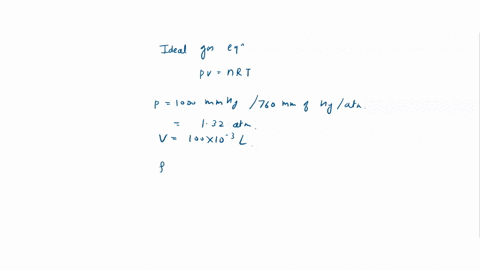 Ideal gas eqⁿ
PV = nRT
P = 1000 mm Hg / 760 mm of Hg/atm.
= 1.32 atm.
V = 100×10⁻³ L.